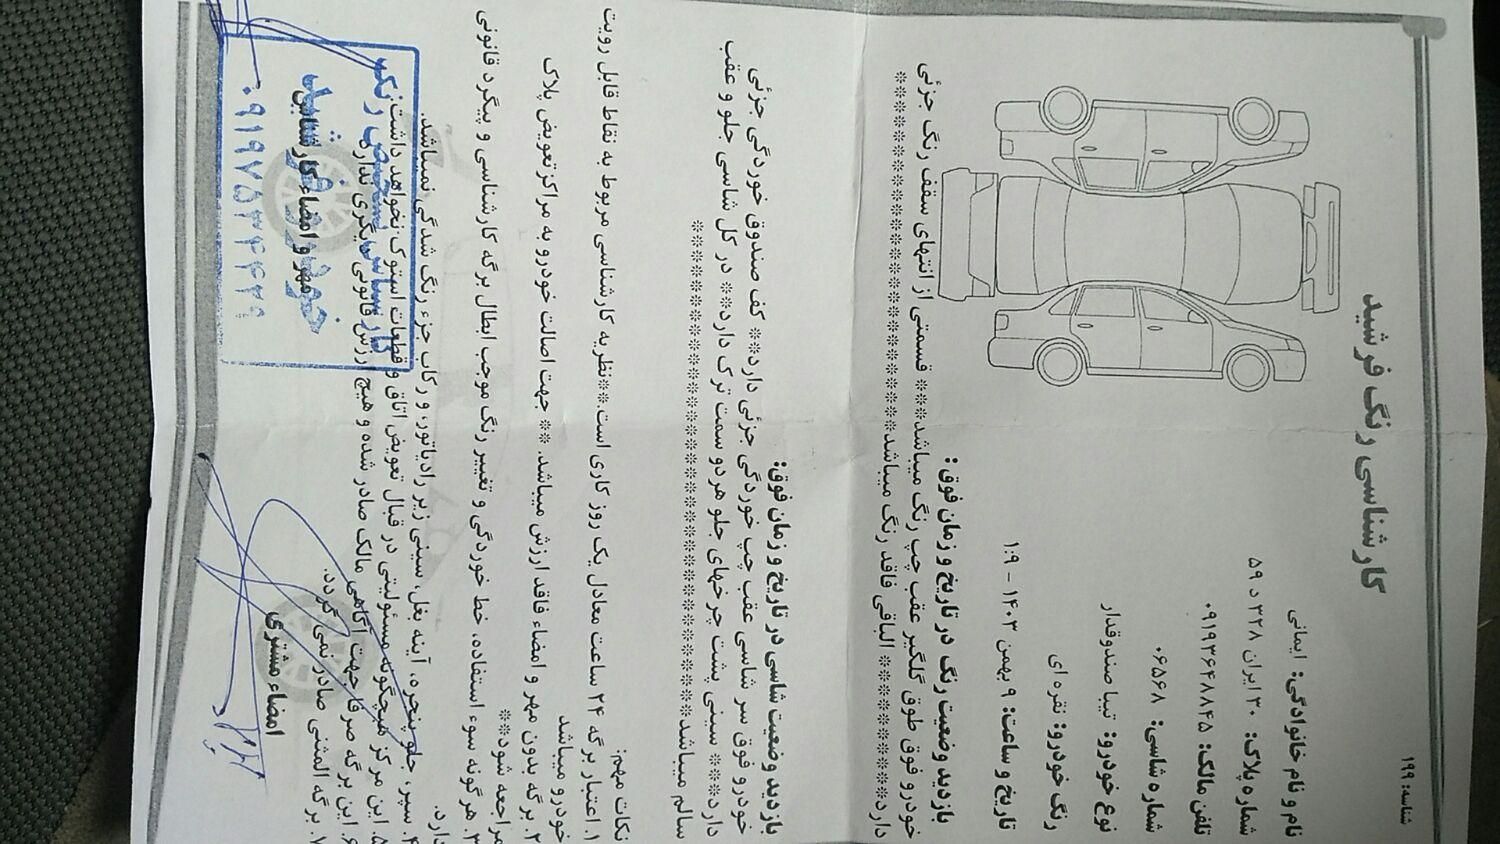 شناسه: ۱۹۹
کارشناسی رنگ فرشید
نام و نام خانوادگی: ایمانی
شماره پلاک: ۳۰ ایران ۳۲۸ د ۵۹
تلفن مالک: ۰۹۱۹۳۶۴۸۸۴۵
شماره شاسی: ۰۶۵۶۸
نوع خودرو: تیبا صندوقدار
رنگ خودرو: نقره ای
تاریخ و ساعت: ۹ بهمن ۱۴۰۳ - ۱:۹
بازدید وضعیت رنگ در تاریخ و زمان فوق:
خودرو فوق طوق گلگیر عقب چپ رنگ میباشد** قسمتی از انتهای سقف رنگ جزئی
دارد** الباقی فاقد رنگ میباشد
بازدید وضعیت شاسی در تاریخ و زمان فوق:
خودرو فوق سر شاسی عقب چپ خوردگی جزئی دارد** کف صندوق خوردگی جزئی
دارد** سینی پشت چرخهای جلو هر دو سمت ترک دارد** در کل شاسی جلو و عقب
سالم میباشد
نکات مهم:
۱. اعتبار برگه ۲۴ ساعت معادل یک روز کاری است.**نظریه کارشناسی مربوط به نقاط قابل رویت
خودرو میباشد
۲. برگه بدون مهر و امضاء فاقد ارزش میباشد. ** جهت اصالت خودرو به مراکز تعویض پلاک
مراجعه شود**
۳. هر گونه سوء استفاده، خط خوردگی و تغییر رنگ موجب ابطال برگه کارشناسی و پیگرد قانونی
دارد.
۴. سپر، جلو پنجره، آینه بغل، سینی زیر رادیاتور، و رکاب جزء رنگ شدگی نمیباشد.
۵. این مرکز هیچگونه مسئولیتی در قبال تعویض اتاق و قطعات استوک نخواهد داشت.
۶. این برگه صرفا جهت آگاهی مالک صادر شده و هیچ ارزش قانونی دیگری ندارد.
۷. برگه المثنی صادر نمی گردد.
امضاء مشتری
مهر و امضاء کارشناس
کارشناس تشخیص رنگ
خودرو فرشید
۰۹۱۹۷۵۳۴۴۳۹